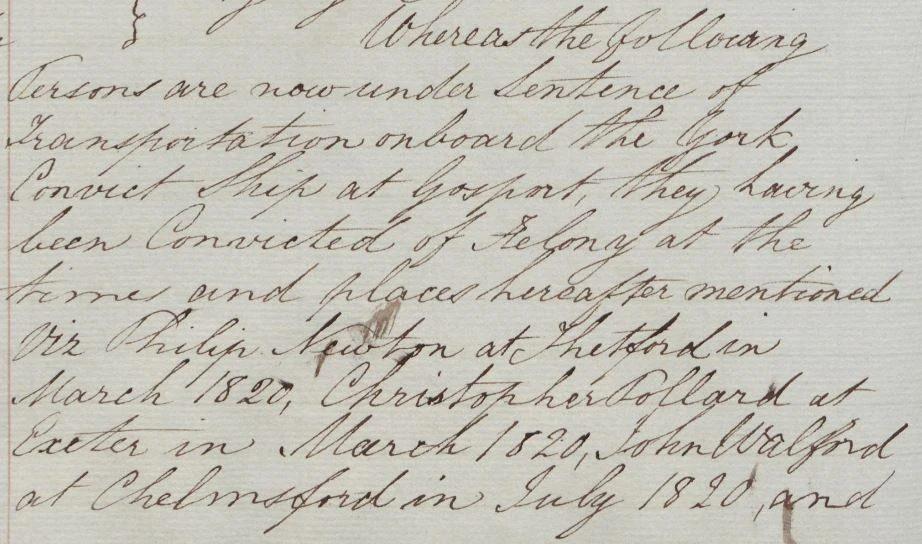 Whereas the following
Persons are now under Sentence of
Transportation onboard the York
Convict Ship at Gosport, they having
been Convicted of Felony at the
times and places hereafter mentioned
Viz Philip Newton at Thetford in
March 1820, Christopher Pollard at
Exeter in March 1820, John Walford
at Chelmsford in July 1820, and